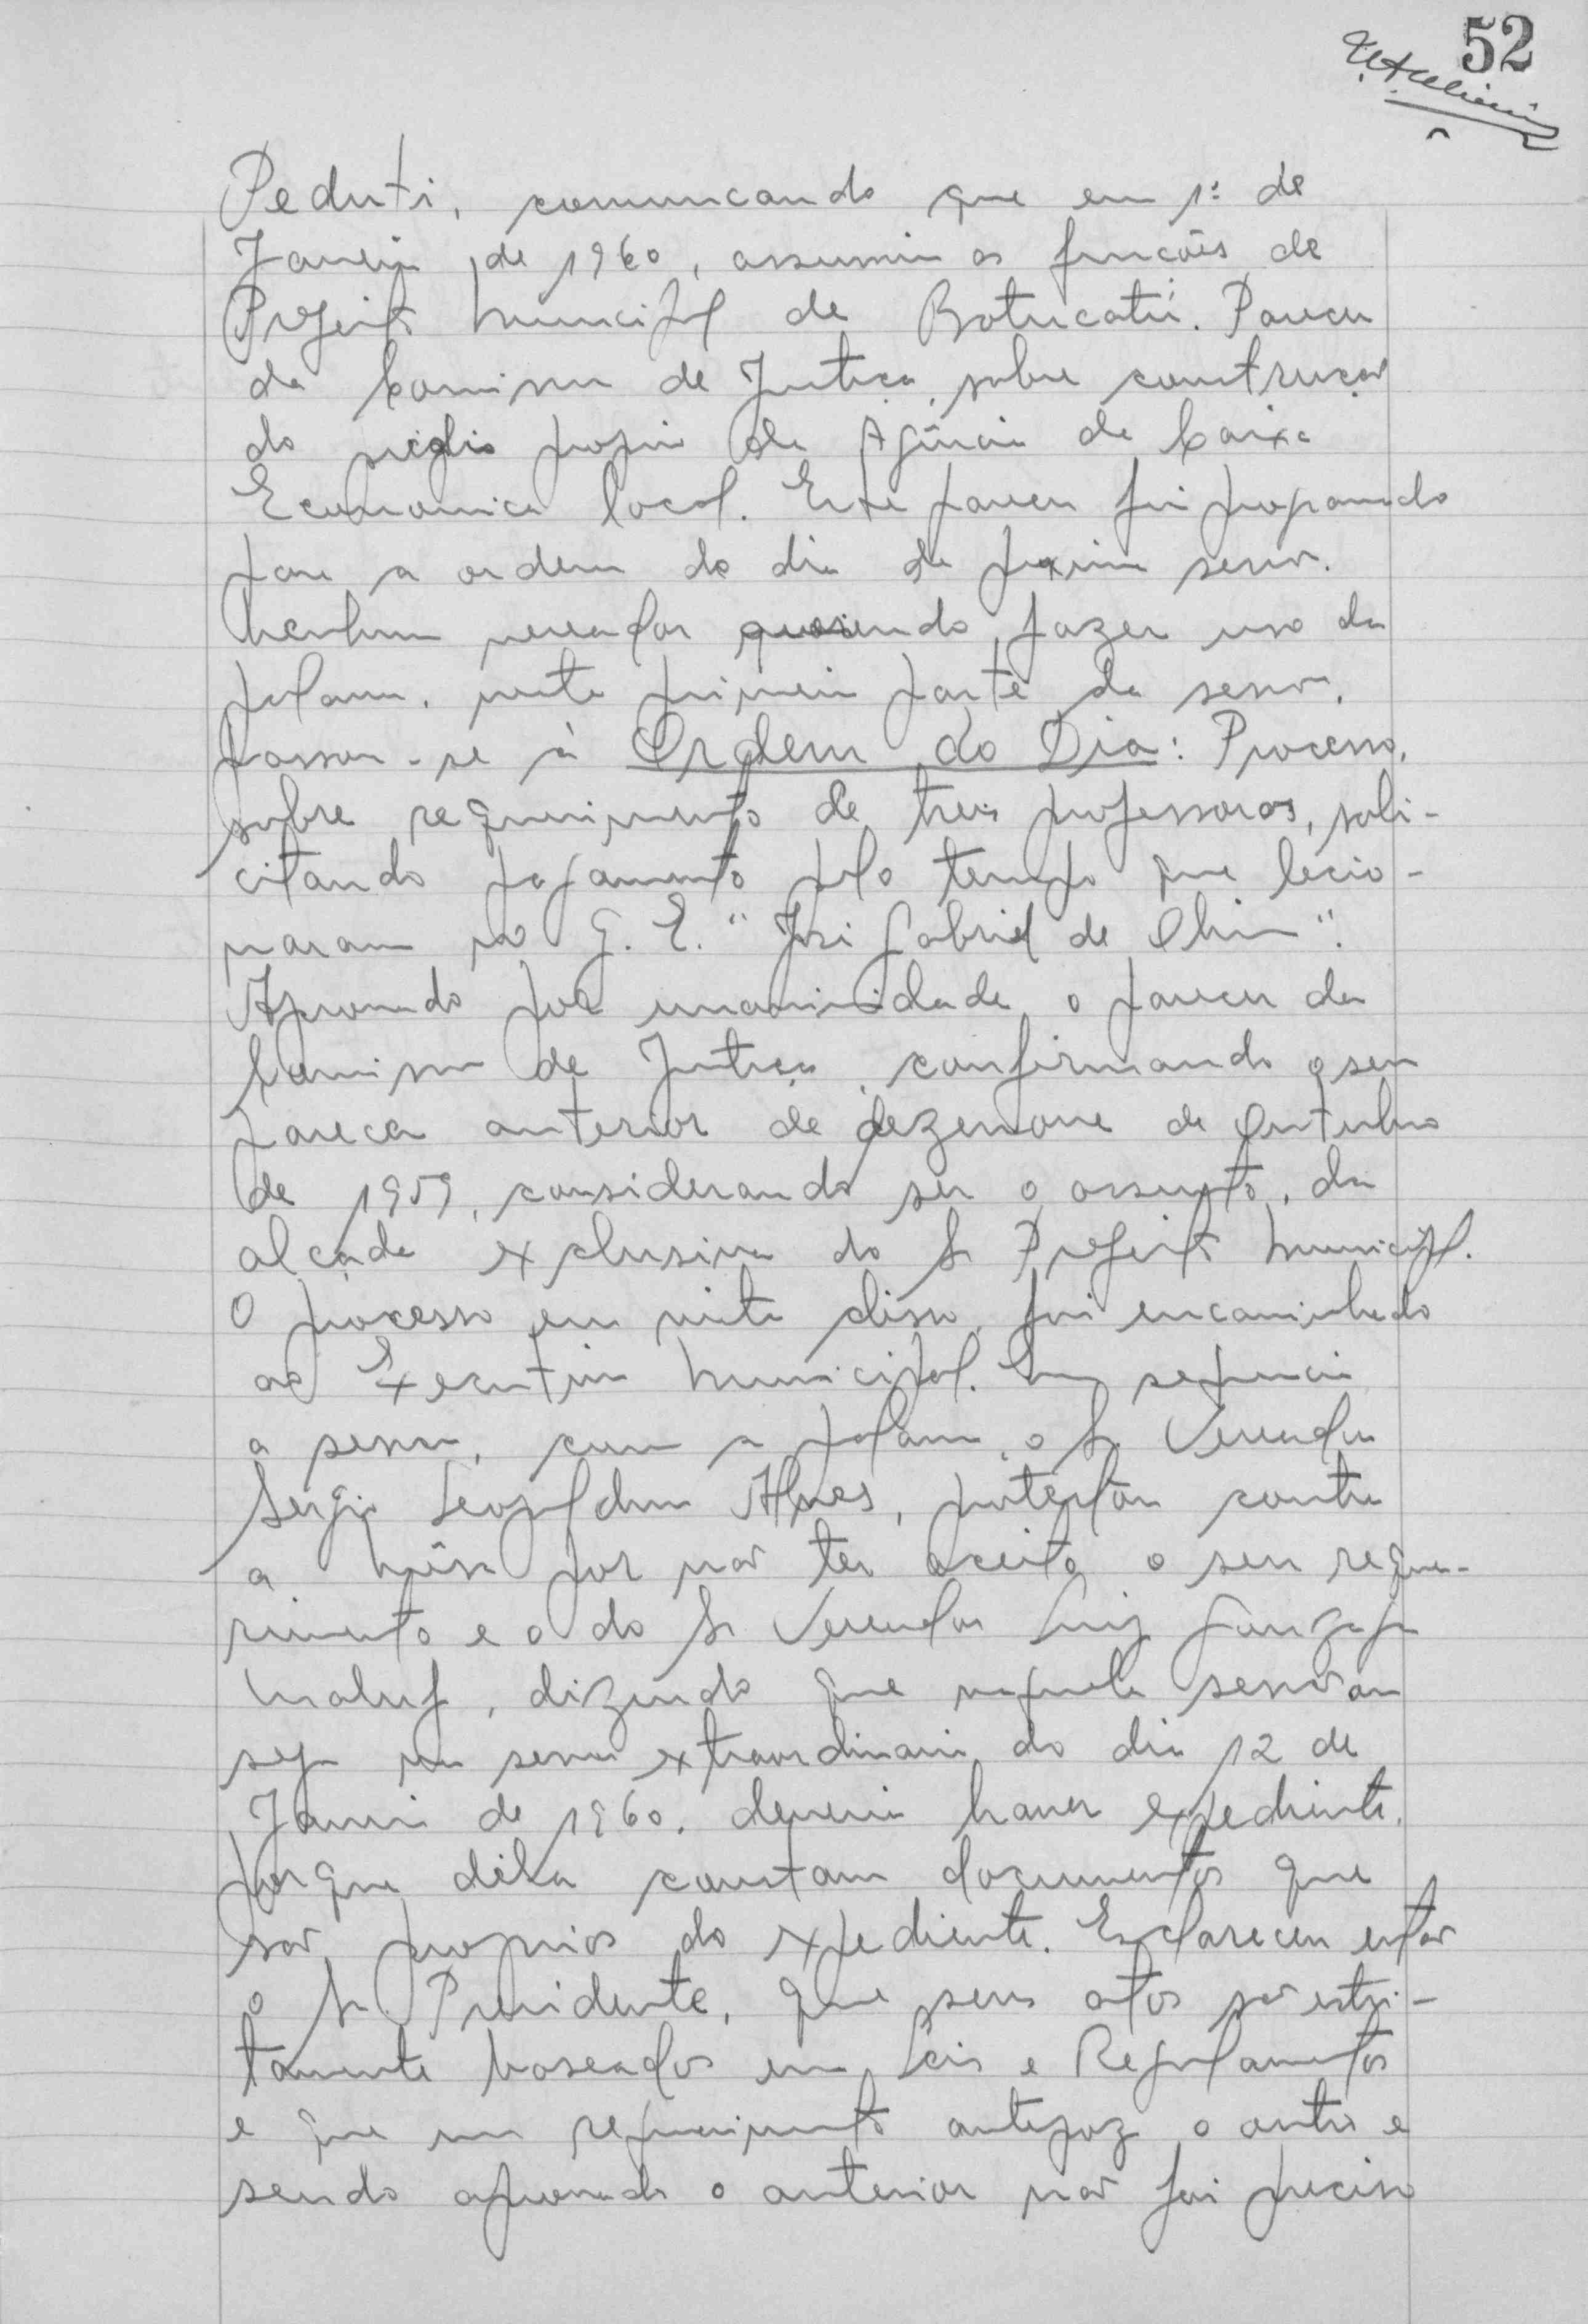 52
Peduti, comunicando que em 1º de
Janeiro de 1960, assumiu as funcões de
Prefeito Municipal de Botucatú. Parecer
da Comissão de Justiça, sobre construção
do prédio proprio da Agência da Caixa
Economica local. Este parecer foi preparado
para a ordem do dia da proxima sessão.
Nenhum vereador querendo fazer uso da
palavra, nesta primeira parte da sessão,
passou-se à Ordem do Dia: Processo,
sobre requerimento de tres professoras, soli-
citando pagamento pelo tempo que lecio-
naram no G. E. "José Gabriel de Oliveira".
Aprovado por unanimidade o parecer da
Comissão de Justiça, confirmando o seu
parecer anterior de dezenove de Outubro
de 1959, considerando ser o assunto, da
alçada exclusiva do Sr Prefeito Municipal.
O processo em vista disso, foi encaminhado
ao Executivo Municipal. Em sequencia
a sessão, com a palavra, o Sr. Vereador
Sergio Leopoldino Alves, protestou contra
a Mêsa por não ter aceito o seu reque-
rimento e o do Sr Vereador Luiz Gonzaga
Maluf, dizendo que naquela sessão ou
seja na sessão extraordinaria do dia 12 de
Janeiro de 1960, deveria haver expediente,
porque dela constam documentos que
são proprios do expediente. Esclareceu então
o Sr. Presidente, que seus atos são estri-
tamente baseados em Leis e Regulamentos
e que um requerimento antepoz o outro e
sendo aprovado o anterior não foi preciso